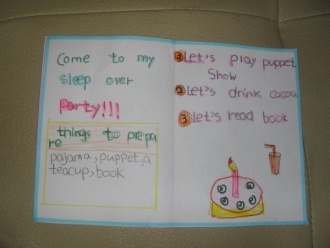 Come to my
sleep over
Party!!!
things to prepa
re
pajama, puppet, a
teacup, book
① Let's play puppet
Show
② Let's drink cocoa
③ Let's read book